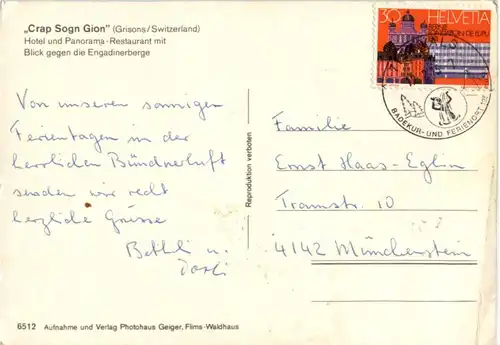 „Crap Sogn Gion" (Grisons/Switzerland)
Hotel und Panorama-Restaurant mit
Blick gegen die Engadinerberge
Von unseren sonnigen
Ferientagen in der
herrlichen Bündnerluft
senden wir recht
herzliche Grüsse
Bethli u.
Reproduktion verboten
30 HELVETIA
BADEKUR- UND FERIENORT
Familie
Ernst Haas-Eglin
Tramstr. 10
4142 Münchenstein
6512 Aufnahme und Verlag Photohaus Geiger, Flims-Waldhaus